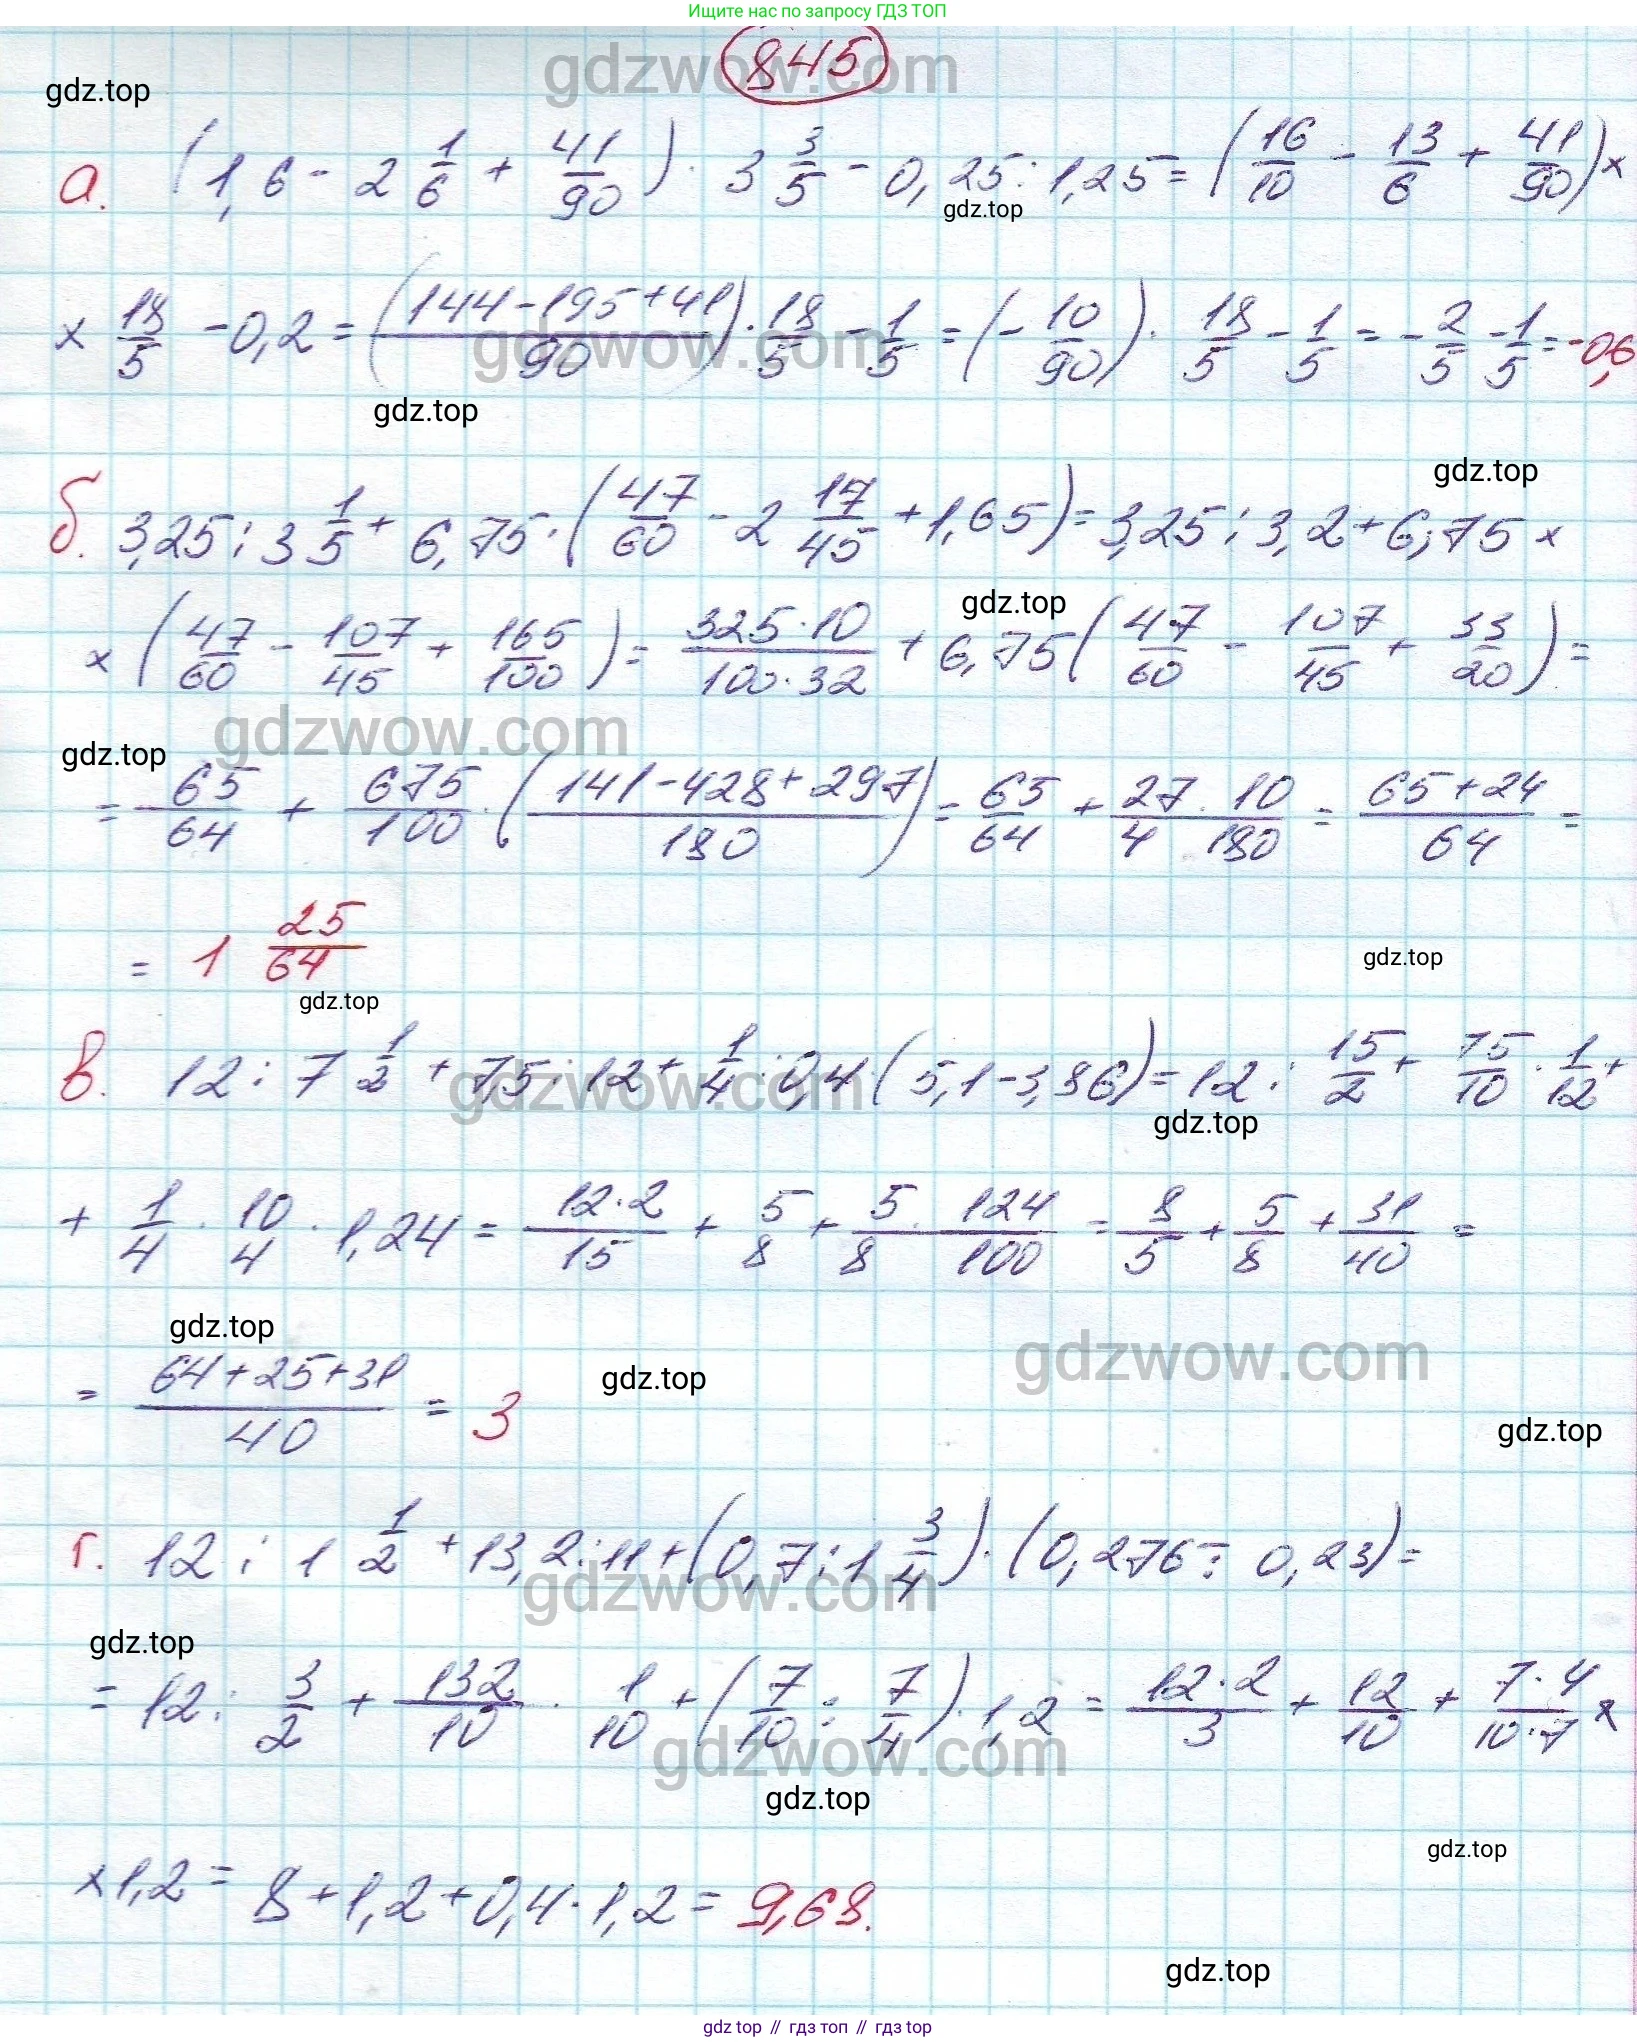 Ищите нас по запросу ГДЗ ТОП
845
gdzwow.com
gdz.top
а. (1,6 - 2 1/6 + 41/90) · 3 3/5 - 0,25 : 1,25 = (16/10 - 13/6 + 41/90) ×
gdz.top
× 18/5 - 0,2 = ((144-195+41)/90) · 18/5 - 1/5 = (-10/90) · 18/5 - 1/5 = -2/5 - 1/5 = -0,6
gdzwow.com
gdz.top
gdz.top
б. 3,25 : 3 1/5 + 6,75 · (47/60 - 2 17/45 + 1,65) = 3,25 : 3,2 + 6,75 ×
gdz.top
× (47/60 - 107/45 + 165/100) = (325·10)/(100·32) + 6,75 (47/60 - 107/45 + 33/20) =
gdzwow.com
gdz.top
= 65/64 + 675/100 · ((141-428+297)/180) = 65/64 + 27/4 · 10/180 = (65+24)/64 =
= 1 25/64
gdz.top
gdz.top
в. 12 : 7 1/2 + 7,5 : 12 + 1/4 : 0,4 · (5,1-3,86) = 12 : 15/2 + 75/10 · 1/12 +
gdzwow.com
gdz.top
+ 1/4 · 10/4 · 1,24 = (12·2)/15 + 5/8 + 5/8 · 124/100 = 8/5 + 5/8 + 31/40 =
gdz.top
gdzwow.com
= (64+25+31)/40 = 3
gdz.top
gdz.top
г. 12 : 1 1/2 + 13,2 : 11 + (0,7 : 1 3/4) · (0,276 : 0,23) =
gdzwow.com
gdz.top
= 12 : 3/2 + 132/10 · 1/10 + (7/10 : 7/4) · 1,2 = (12·2)/3 + 12/10 + (7·4)/(10·7) ×
gdzwow.com
gdz.top
gdz.top
× 1,2 = 8 + 1,2 + 0,4 · 1,2 = 9,68.
gdz.top
gdz top // гдз топ // гдз top